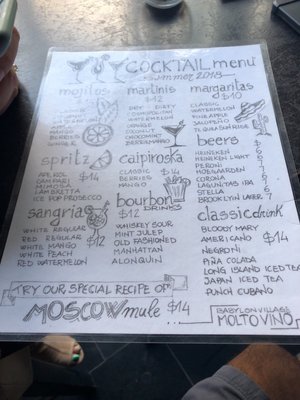 COCKTAIL menu
summer 2018
mojitos
MANGO
BERRIES
GINGER
martinis
$12
DRY - DIRTY
COSMOPOLITAN
WATERMELON
MANGO
COCONUT
CHOCOMINT
BERRISMANGO
margaritas
$10
CLASSIC
WATERMELON
PINEAPPLE
JALAPEÑO
TEQUILA SUNRISE
beers
HEINEKEN
HEINEKEN LIGHT
PERONI
HOEGARDEN
CORONA
LAGUNITAS IPA
STELLA
BROOKLYN LAGER 7
spritz
APEROL
CAMPARI
MIMOSA
LAMBRETTA
ICE POP PROSECCO
$14
caipiroska
CLASSIC
BERRIES
MANGO
$14
sangria
WHITE REGULAR
RED REGULAR
WHITE MANGO
WHITE PEACH
RED WATERMELON
$12
bourbon
DRINKS
WHISKEY SOUR
MINT JULEP
OLD FASHIONED
MANHATTAN
ALGNQUIN
$12
classic drink
BLOODY MARY
AMERICANO
NEGRONI
PIÑA COLADA
LONG ISLAND ICE TEA
JAPAN ICED TEA
PUNCH CUBANO
$14
TRY OUR SPECIAL RECIPE OF
MOSCOW mule $14
BABYLON VILLAGE
MOLTOVINO